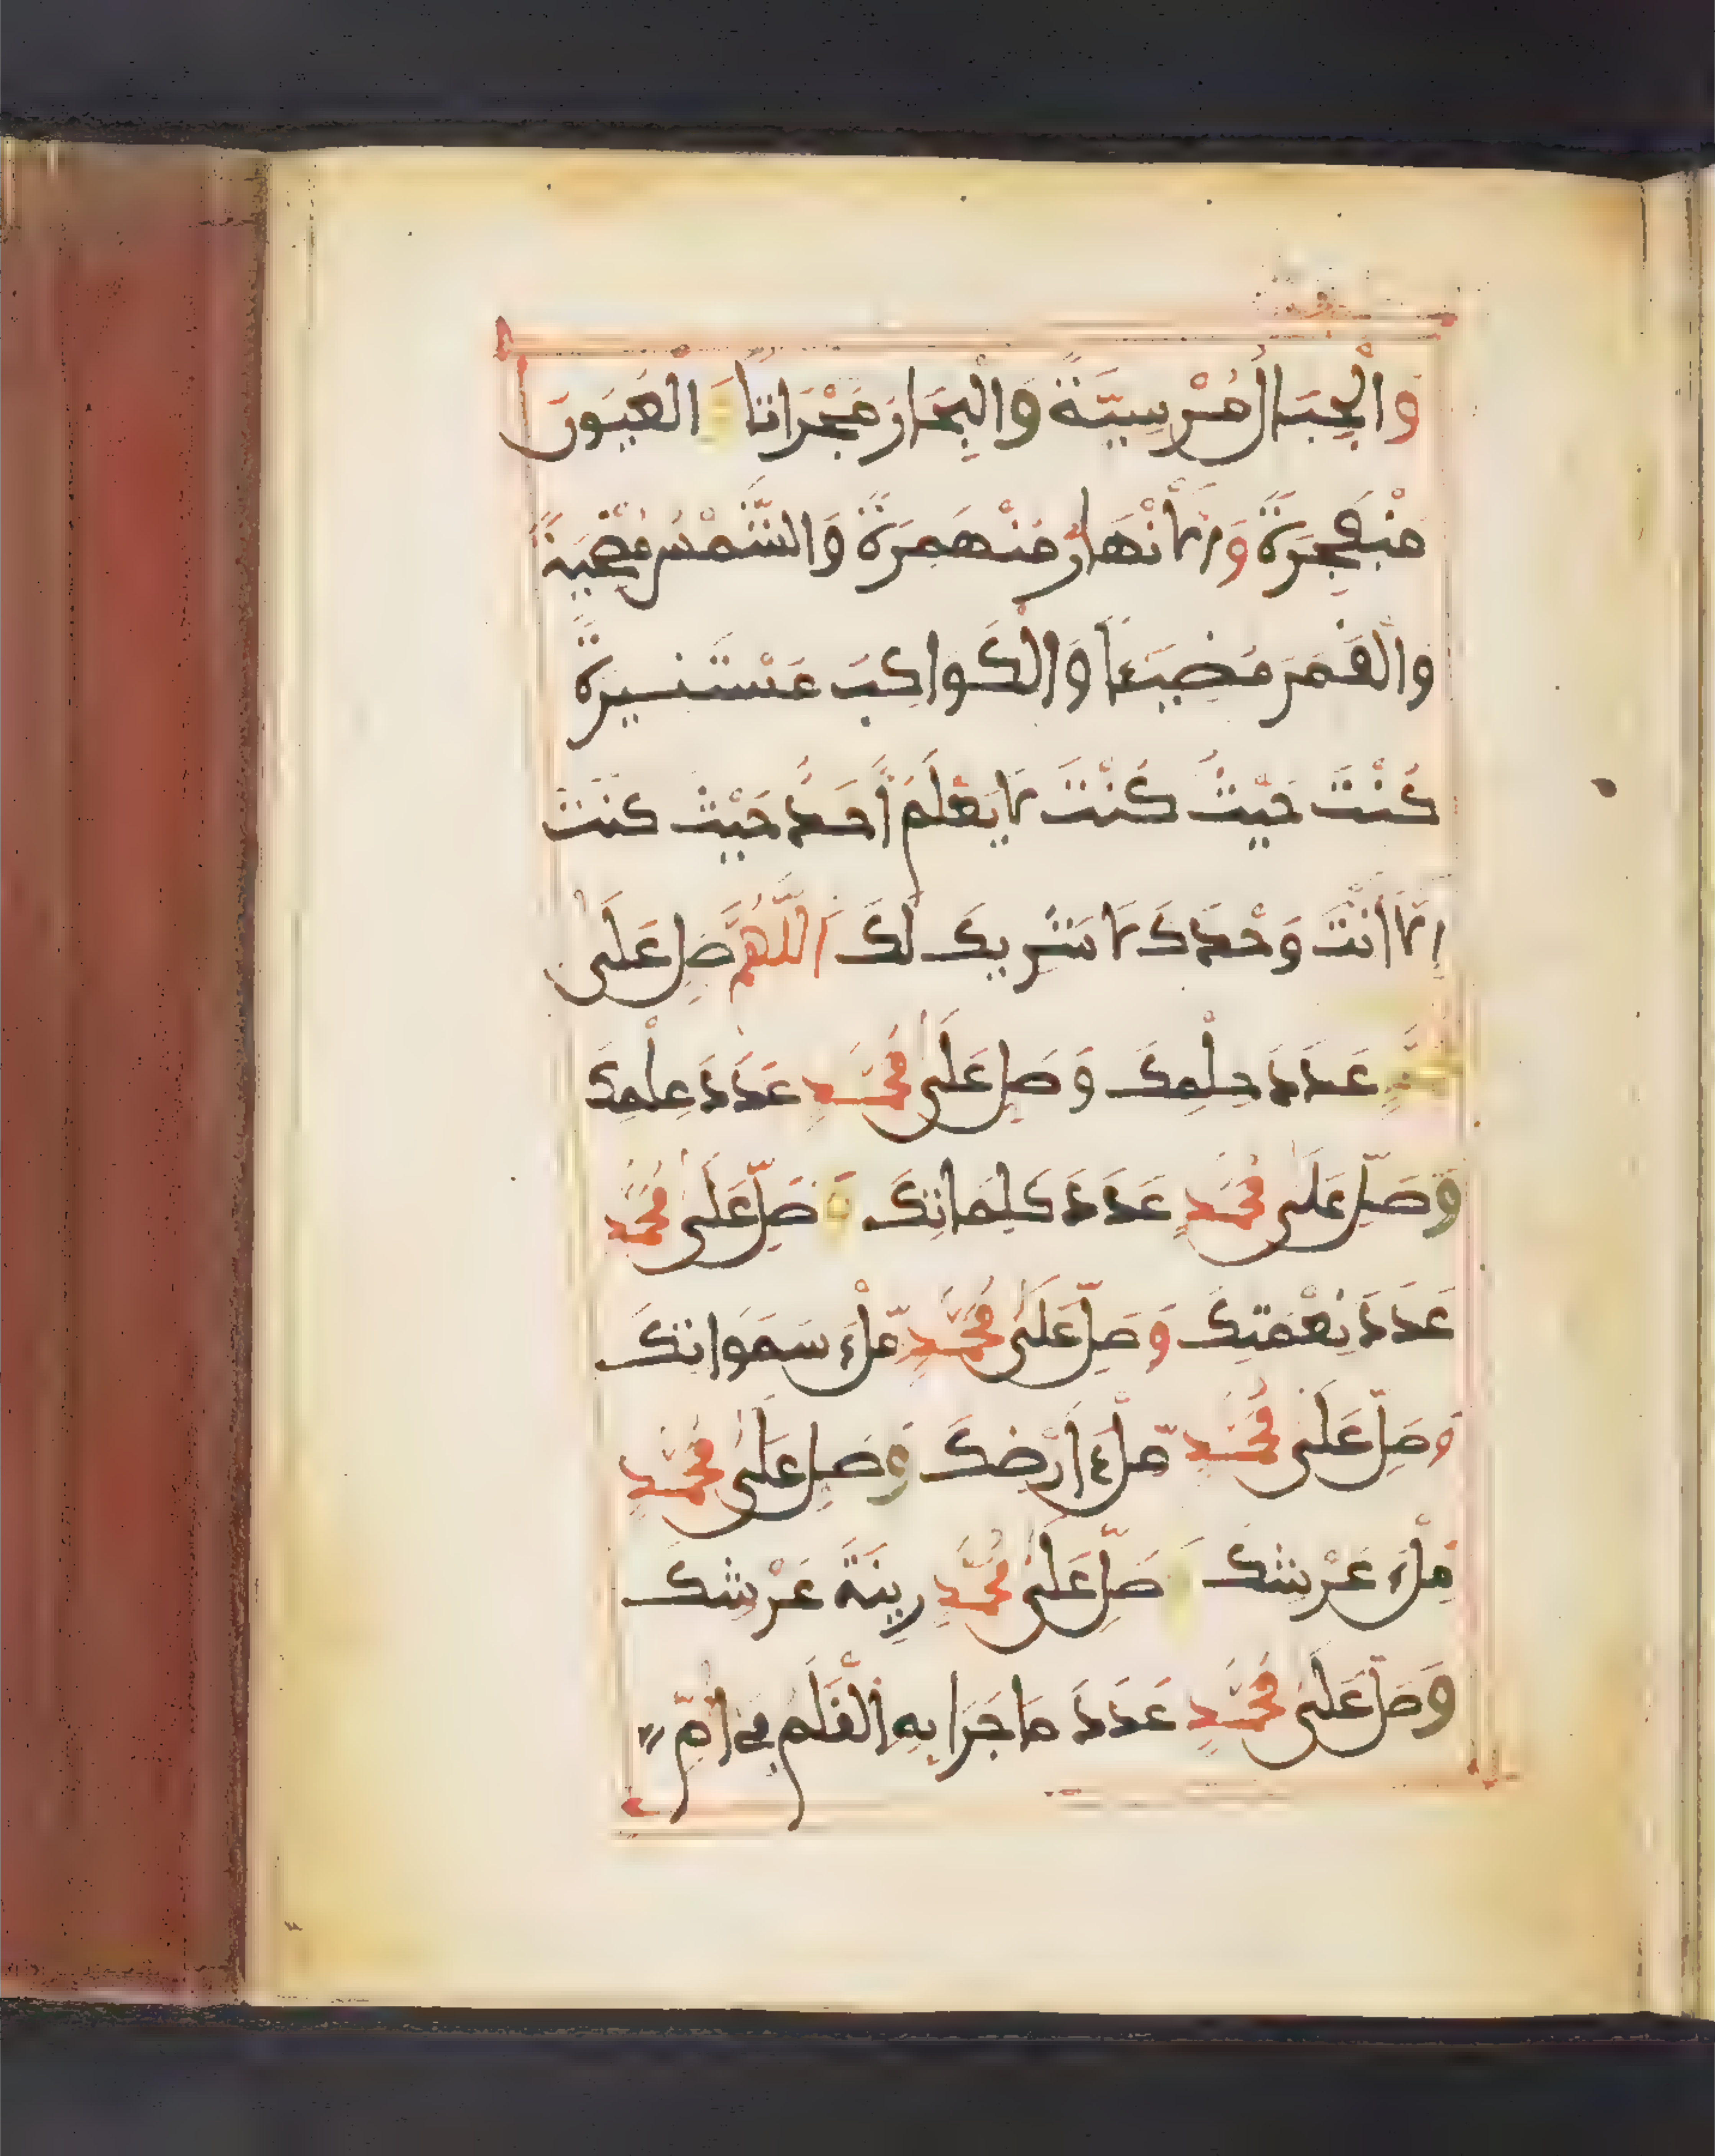 وَالْجِبَالُ مُرْسِيَّةً وَالْبِحَارَ مَجْرَاتًا وَ الْعُيُونَ
مُنْفَجِرَةً وَالْأَنْهَارُ مُنْهَمِرَةً وَالشَّمْسُ مُضْحِيَةً
وَالْقَمَرَ مُضِيئًا وَالْكَوَاكِبَ مُسْتَنِيرَةً
كُنْتَ حَيْثُ كُنْتَ لَا يَعْلَمُ أَحَدٌ حَيْثُ كُنْتَ
إِلَّا أَنْتَ وَحْدَكَ لَا شَرِيكَ لَكَ اَللَّهُمَّ صَلِّ عَلَى
مُحَمَّدٍ عَدَدَ حِلْمِكَ وَصَلِّ عَلَى مُحَمَّدٍ عَدَدَ عِلْمِكَ
وَصَلِّ عَلَى مُحَمَّدٍ عَدَدَ كَلِمَاتِكَ وَصَلِّ عَلَى مُحَمَّدٍ
عَدَدَ نِعْمَتِكَ وَصَلِّ عَلَى مُحَمَّدٍ مِّلْءَ سَمَوَاتِكَ
وَصَلِّ عَلَى مُحَمَّدٍ مِّلْءَ أَرْضِكَ وَصَلِّ عَلَى مُحَمَّدٍ
مِلْءَ عَرْشِكَ وَصَلِّ عَلَى مُحَمَّدٍ زِينَةَ عَرْشِكَ
وَصَلِّ عَلَى مُحَمَّدٍ عَدَدَ مَا جَرَا بِهِ الْقَلَمُ فِي أُمِّ